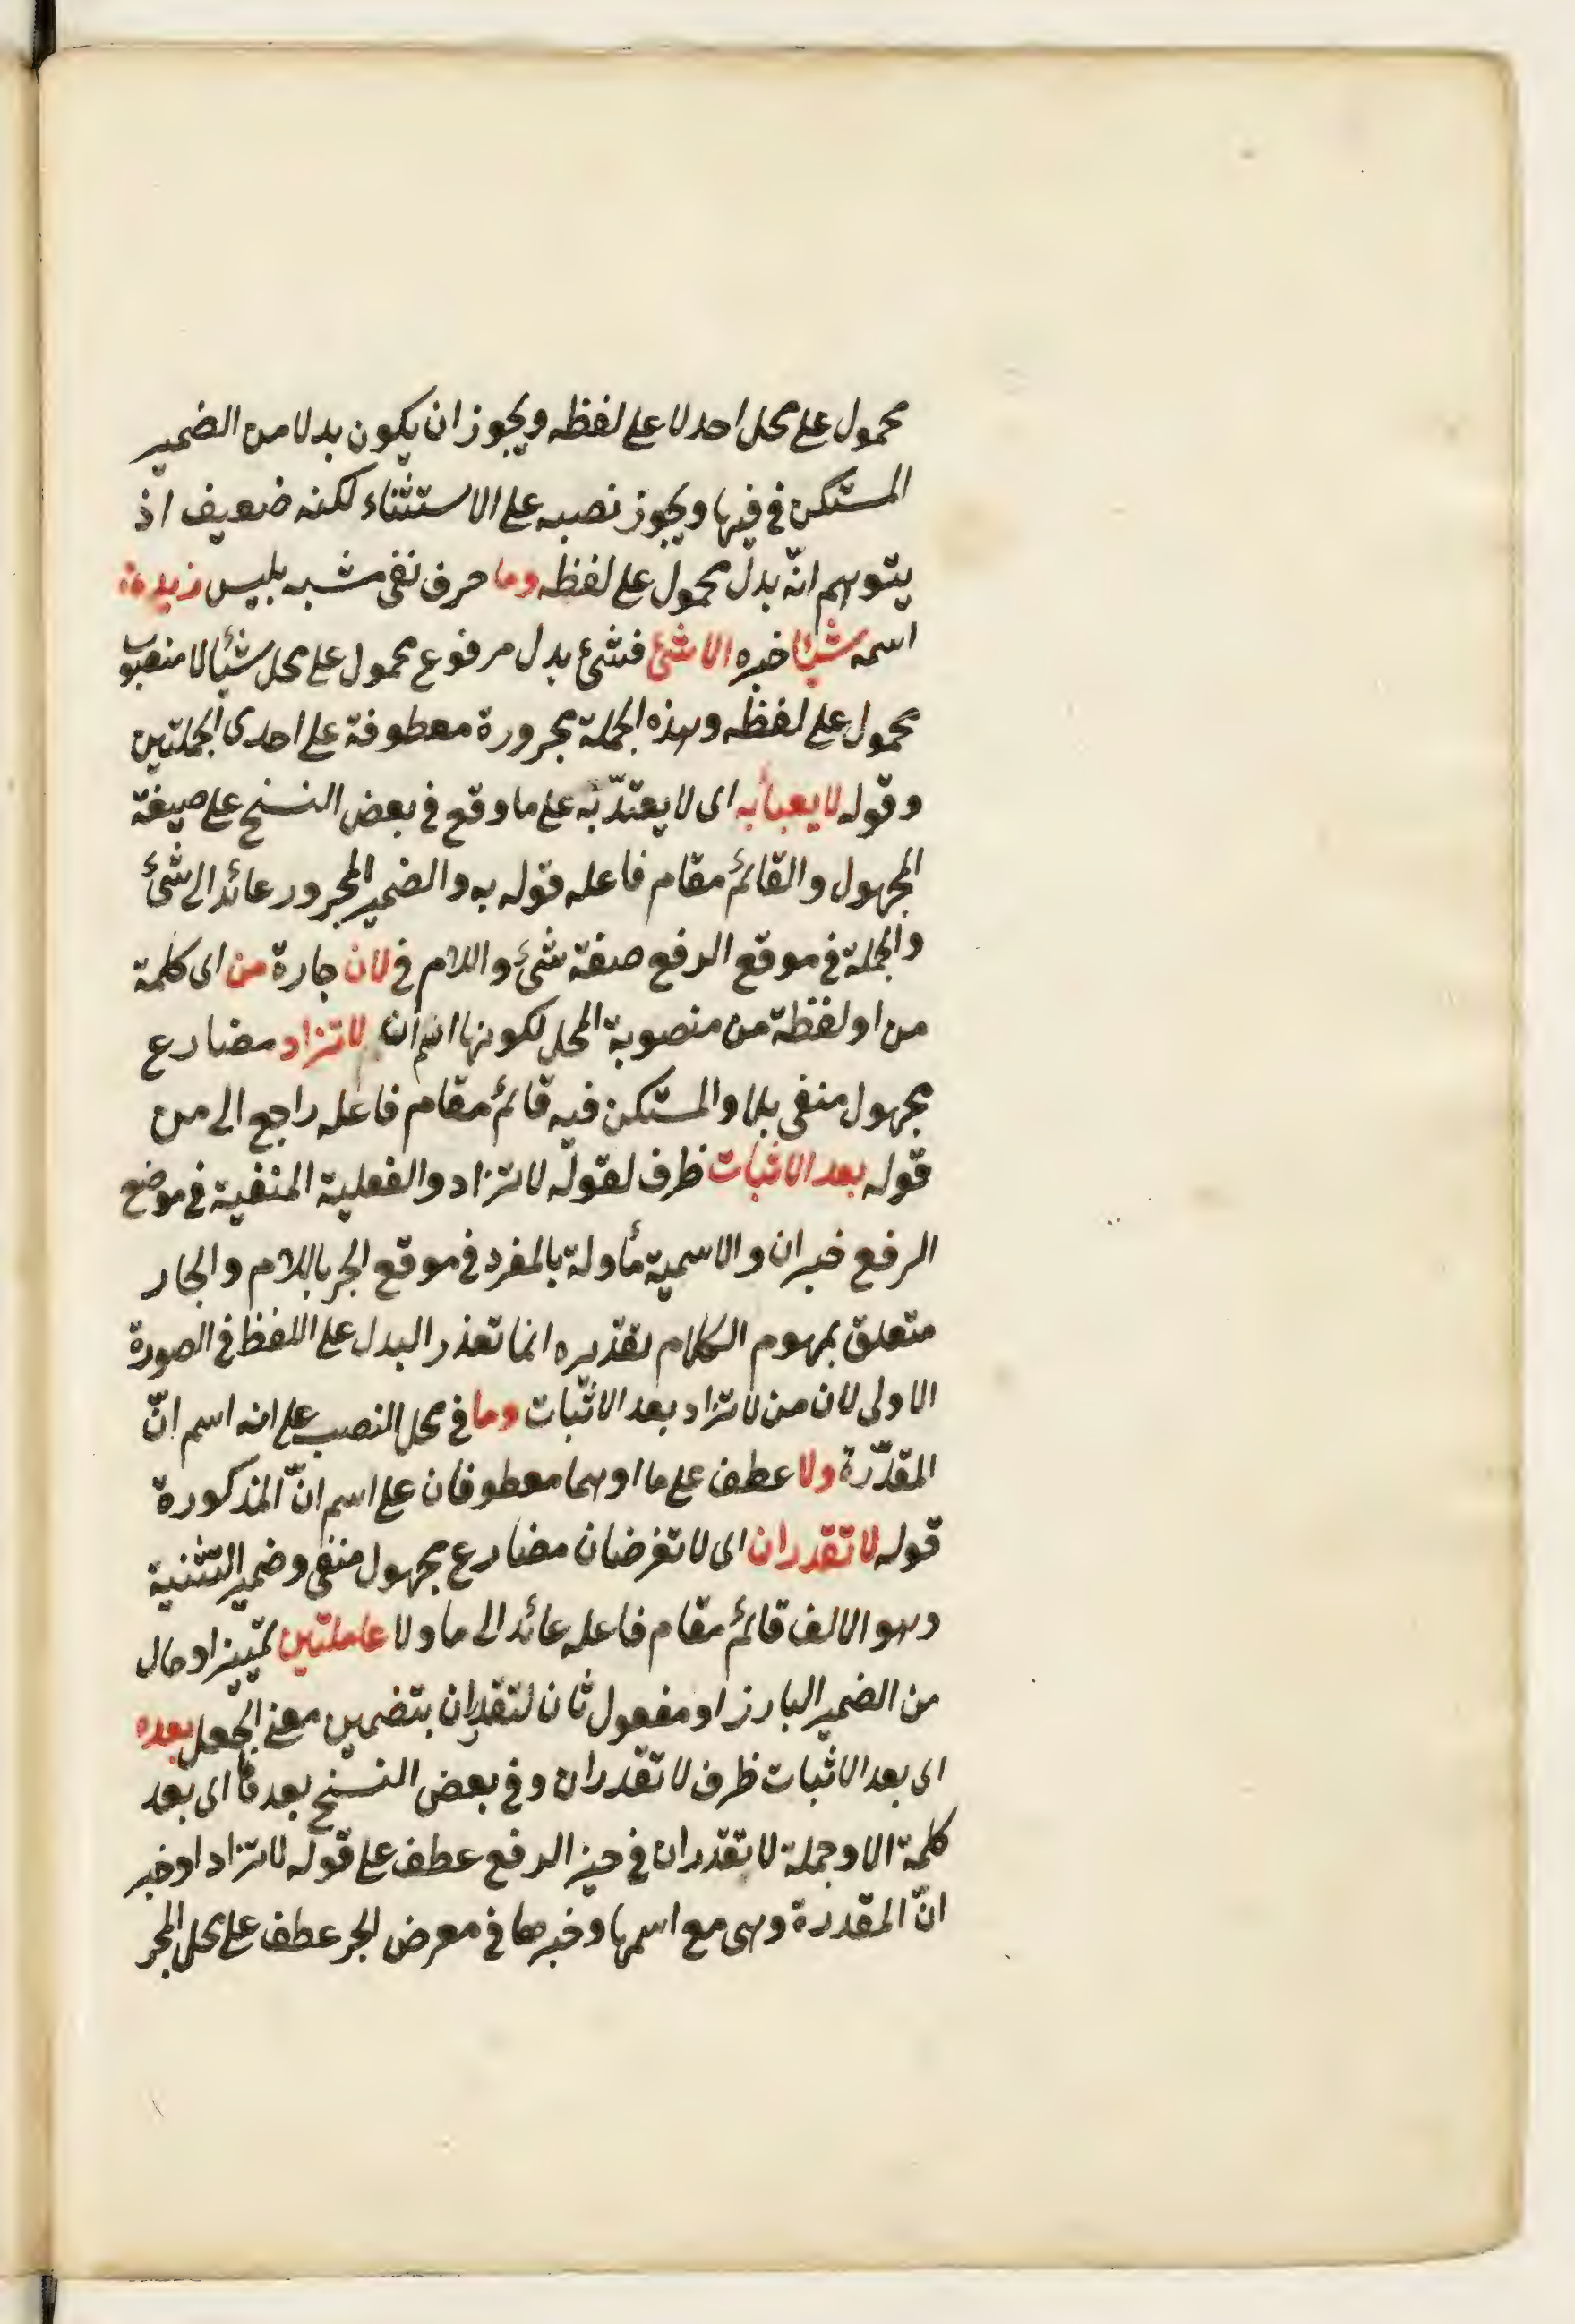 محمول على محل احد لا على لفظه ويجوز ان يكون بدلا من الضمير
المستكن في فيها ويجوز نصبه على الاستثناء لكنه ضعيف اذ
يتوهم انّه بدل محمول على لفظه وما حرف نفى مشبه بليس زيد
اسمه شيئا خبره الا شئ فشئ بدل مرفوع محمول على محل شيئا لا منصوب
محمول على لفظه وهذه الجملة مجرورة معطوفة على احدى الجملتين
وقوله لا يعبأ به اى لا يعتدّ به على ما وقع في بعض النسخ على صيغة
المجهول والقائم مقام فاعله قوله به والضمير المجرور عائد الى شئ
والجملة في موقع الرفع صفة شئ واللام في لان جارة من اى كلمة
من او لفظة من منصوبة المحل لكونها اسم ان لا تزاد مضارع
مجهول منفى بلا والمستكن فيه قائم مقام فاعله راجع الى من
قوله بعد الاثبات ظرف لقوله لا تزاد والفعلية المنفية في موضع
الرفع خبر ان والاسمية مأولة بالمفرد في موقع الجر باللام والجار
متعلق بمهوم الكلام تقديره انما تعذر البدل على اللفظ في الصورة
الاولى لان من لا تزاد بعد الاثبات وما في محل النصب على انه اسم انّ
المقدّرة ولا عطف على ما او هما معطوفان على اسم انّ المذكورة
قوله لا تقدران اى لا تفرضان مضارع مجهول منفى وضمير التثنية
وهو الالف قائم مقام فاعله عائد الى ما ولا عاملتين تمييز او حال
من الضمير البارز او مفعول ثان لتقدران بتضمين معنى الجعل بعده
اى بعد الاثبات ظرف لا تقدران وفي بعض النسخ بعدها اى بعد
كلمة الا وجملة لا تقدران في حيز الرفع عطف على قوله لا تزاد او خبر
انّ المقدرة وهى مع اسمها وخبرها في معرض الجر عطف على محل المجر